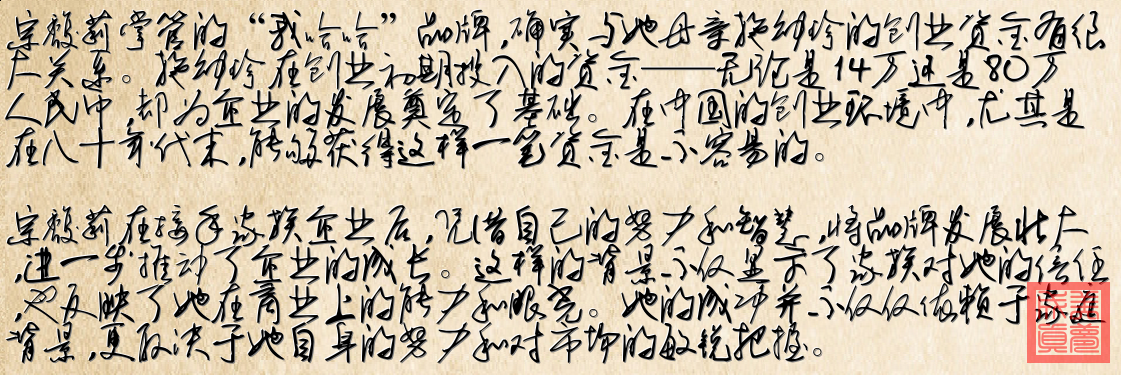 宗馥莉掌管的“娃哈哈”品牌,确实与她母亲施幼珍的创业资金有很
大关系。施幼珍在创业初期投入的资金——无论是14万还是80万
人民币,却为企业的发展奠定了基础。在中国的创业环境中,尤其是
在八十年代末,能够获得这样一笔资金是不容易的。
宗馥莉在接手家族企业后,凭借自己的努力和智慧,将品牌发展壮大
,进一步推动了企业的成长。这样的背景不仅显示了家族对她的信任
,也反映了她在商业上的能力和眼光。她的成功并不仅仅依赖于家庭
背景,更取决于她自身的努力和对市场的敏锐把握。